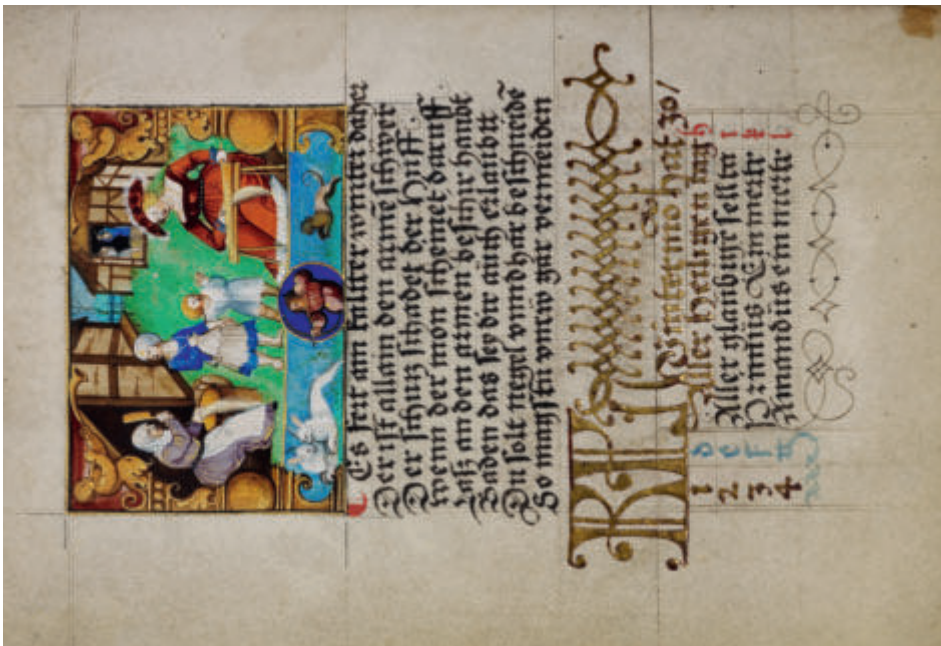 Es trit am kalter wonter daher
Der ist allain den armē schwer
Der schutz schadet der
wenn der mon schenet darauff
Laß an den armen handt
Baden das sey dir auch erlaubtt
Du solt negel vnnd har beschneidē
So magstu vnrw gar vermeiden
KL Wintermo hat 30/
1 d Aller heiligen tag
2 e Aller glaubig
3 f Ein
4 g Amandus ein